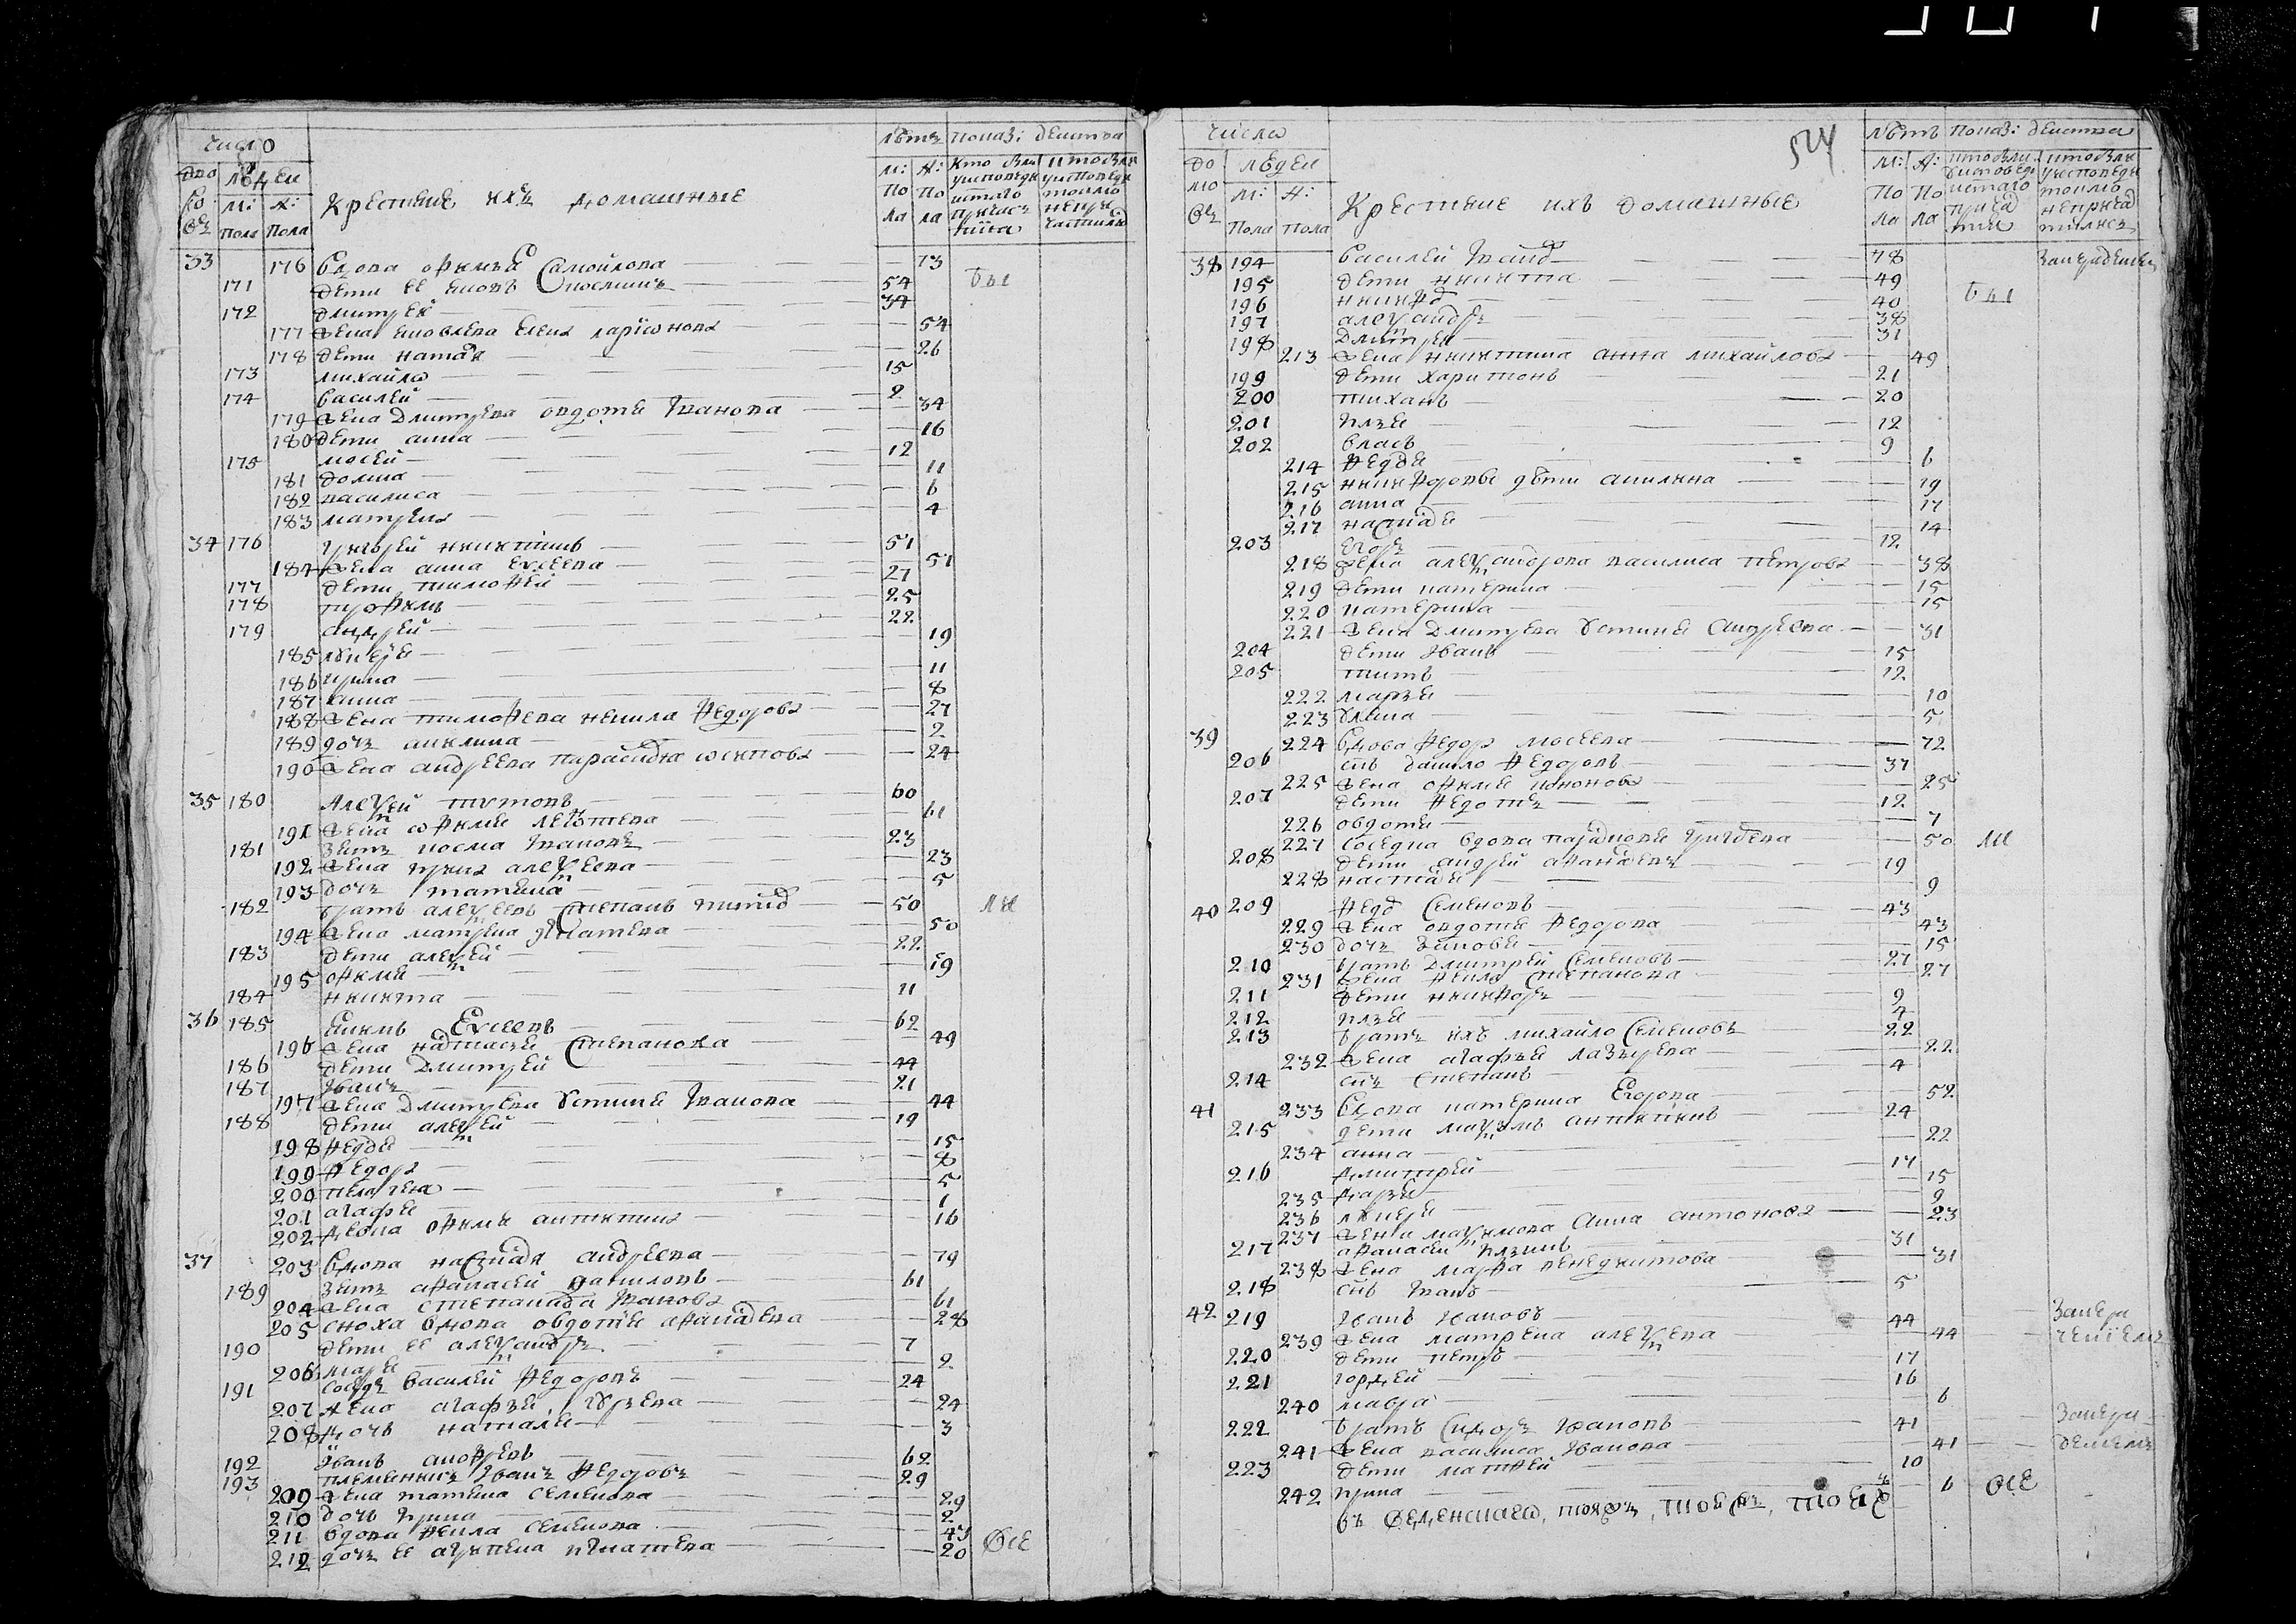 число
лѣтъ показ: деиства
дво людеи
м: ж: кто были что были
ро: м: ж: Крестьяне ихъ домашные по по
въ пола пола ла ла
33 176 Вдова офимья Самойлова 73
171 дети ее яковъ 54 бы
172 дмитрей 34
177 жена яковлева елена ларіонова 54
178 дети наталя 26
173 михайло 15
174 василей 2
179 жена дмитрева овдотья Иванова 34
180 дети анна 16
175 мосей 12
181 домна 11
182 василиса 6
183 матрена 4
34 176 григорей никитинъ 51
184 жена анна евсеева 51
177 дети тимофей 27
178 трофимъ 25
179 андрей 22
185 лукерья 19
186 ирина 11
187 анна 8
188 жена тимофева ненила федорова 27
189 дочь акилина 2
190 жена андреева парасковья осипова 24
35 180 Алексей титовъ 60
191 жена офимья леонтева 61
181 зять косма Ивановъ 23
192 жена ирина алексеева 23
193 дочь татьяна 5
182 братъ алексеевъ степанъ титовъ 50 ли
194 жена матрена игнатева 50
183 дети алексей 22
195 офимья 19
184 никита 11
36 185 Екимъ Евсеевъ 62
196 жена настасья степанова 49
186 дети дмитрей 44
187 Иванъ 21
197 жена дмитрева устинья Иванова 44
188 дети алексей 19
198 федосья 15
199 федора 8
200 пелагея 5
201 агафья 1
202 девка офимья антипина 16
37 203 Вдова настасья андреева 79
189 зять афанасей даниловъ 61
204 жена степанида Иванова 61
205 сноха вдова овдотья афанасева 28
190 дети ее александръ 7
206 марья 2
191 соседъ василей федоровъ 24
207 жена агафья 24
208 дочь наталья 3
192 Иванъ андреевъ 62
193 племянникъ Иванъ федоровъ 29
209 жена татьяна семенова 29
210 дочь ирина 2
211 вдова фекла семенова 43
212 дочь ее агрипена игнатева 20 Все
числа
524
лѣтъ показ: деиства
до людеи
м: ж:
мо м: ж: Крестьяне ихъ домашные по по
въ пола пола ла ла
38 194 василей Иванов 78
195 дети никита 49 бы
196 никифор 40
197 александръ 38
198 дмитрей 31
213 жена никитина анна михайлова 49
199 дети харитонъ 21
200 тиханъ 20
201 илья 12
202 власъ 9
214 федосья 6
215 никифоровы дѣти акилина 19
216 анна 17
217 настасья 14
203 егоръ 12
218 жена александрова василиса петрова 38
219 дети катерина 15
220 катерина 15
221 жена дмитрева устинья андреева 31
204 дети Иванъ 15
205 титъ 12
222 марья 10
223 ульяна 5
39 224 вдова федора мосеева 72
206 сынъ данило федоровъ 37
225 жена офимья кононова 25
207 дети федотъ 12
226 овдотья 7
227 соседка вдова парасковья григорева 50 ли
208 дети андрей афанасевъ 19
228 настасья 9
40 209 федоръ семеновъ 43
229 жена овдотья федорова 43
230 дочь зиновья 15
210 братъ дмитрей семеновъ 27
231 жена фекла степанова 27
211 дети никифоръ 9
212 илья 4
213 братъ ихъ михайло семеновъ 22
232 жена агафья лазарева 22
214 сынъ степанъ 4
41 233 Вдова катерина Егорова 52
215 дети максимъ антипинъ 24
234 анна 22
216 дмитрей 17
235 дарья 15
236 лукерья 9
237 жена максимова анна антонова 23
217 афанасей ильинъ 31
238 жена марфа венедиктова 31
218 сынъ Иванъ 5
42 219 Иванъ Ивановъ 44
239 жена матрена алексеева 44
220 дети петръ 17
221 гордей 16
240 мавра 6
222 братъ сидоръ Ивановъ 41
241 жена василиса Иванова 41
223 дети матвей 10
242 ирина 6 все